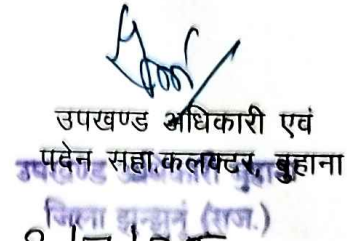 उपखण्ड अधिकारी एवं
पदेन सहा.कलक्टर, बुहाना
उपखण्ड अधिकारी बुहाना
जिला झुन्झुनूं (राज.)